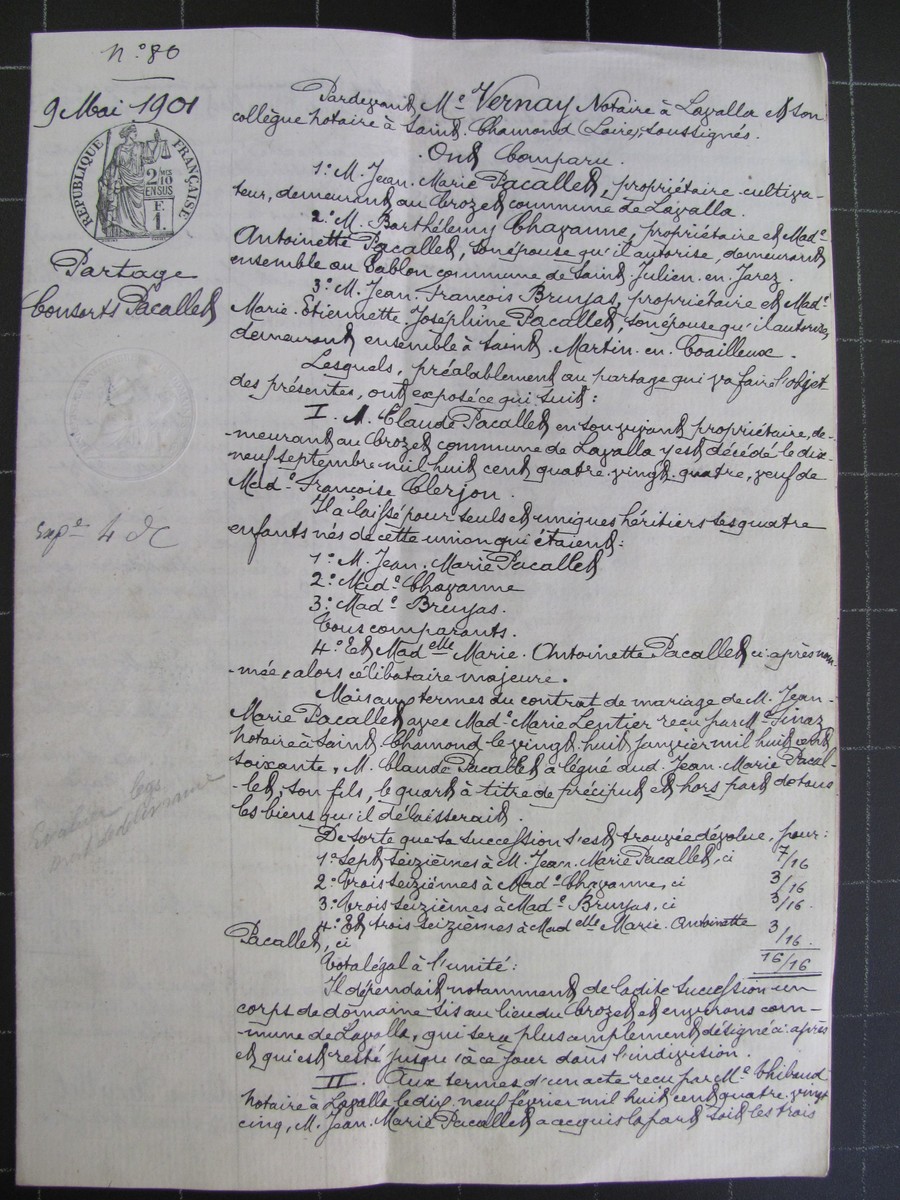 N.° 80
9 Mai 1901
RÉPUBLIQUE FRANÇAISE
2/10 EN SUS
F.
1.
Partage
Consorts Pacallet
Expe 4 dc
Pardevant Me Vernay Notaire à Lavalla et son
collègue notaire à Saint. Chamond (Loire), soussignés.
Ont Comparu.
1° M. Jean. Marie Pacallet, propriétaire cultiva-
teur, demeurant au Crozet commune de Lavalla.
2° M. Barthélemy Chavanne, propriétaire et Made
Antoinette Pacallet, son épouse qu'il autorise, demeurant
ensemble au Sablon commune de Saint. Julien. en. Jarez.
3° M. Jean. François Bruyas, propriétaire et Made
Marie. Etiennette. Joséphine Pacallet, son épouse qu'il autorise,
demeurant ensemble à Saint. Martin. en. Coailleux.
Lesquels, préalablement au partage qui va faire l'objet
des présentes, ont exposé ce qui suit:
I. M. Claude Pacallet en son vivant propriétaire, de-
-meurant au Crozet commune de Lavalla y est décédé le dix
neuf septembre mil huit cent quatre. vingt. quatre, veuf de
Made Françoise Clerjon.
Il a laissé pour seuls et uniques héritiers ses quatre
enfants nés de cette union qui étaient:
1° M. Jean. Marie Pacallet
2° Made Chavanne
3° Made Bruyas.
Tous comparants.
4° Et Madelle Marie. Antoinette Pacallet ci. après nom-
-mée, alors célibataire majeure.
Mais aux termes du contrat de mariage de M. Jean-
Marie Pacallet avec Made Marie Lentier reçu par Me Finaz
notaire à Saint. Chamond le vingt. huit janvier mil huit cent
soixante, M. Claude Pacallet a légué aud. Jean. Marie Pacal-
-let, son fils, le quart à titre de préciput et hors part de tous
les biens qu'il délaisserait.
De sorte que sa succession s'est trouvée dévolue, pour:
1° Sept seizièmes à M. Jean. Marie Pacallet, ci 7/16
2° Trois seizièmes à Made Chavanne, ci 3/16
3° Trois seizièmes à Made Bruyas, ci 3/16.
4° Et trois seizièmes à Madelle Marie. Antoinette
Pacallet, ci 3/16.
Total égal à l'unité: 16/16
Il dépendait notamment de ladite succession un
corps de domaine sis au lieu du Crozet et environs com-
-mune de Lavalla, qui sera plus amplement désigné ci. après
et qui est resté jusqu'à ce jour dans l'indivision.
II. Aux termes d'un acte reçu par Me Thibaud
notaire à Lavalla le dix. neuf février mil huit cent quatre. vingt
cinq, M. Jean. Marie Pacallet a acquis la part soit les trois